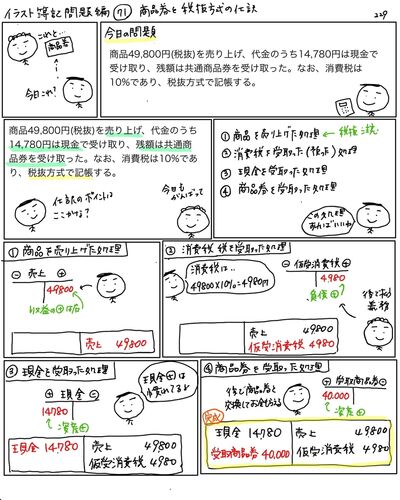 イラスト簿記問題編 71 商品券と税抜方式の仕訳
229
これと…
商品券
今日これ?
今日の問題
商品49,800円(税抜)を売り上げ、代金のうち14,780円は現金で
受け取り、残額は共通商品券を受け取った。なお、消費税は
10%であり、税抜方式で記帳する。
商品49,800円(税抜)を売り上げ、代金のうち
14,780円は現金で受け取り、残額は共通商品
券を受け取った。なお、消費税は10%であ
り、税抜方式で記帳する。
仕訳のポイントは
ここかな?
今日も
がんばって
① 商品を売り上げた処理
② 消費税を受取った(預った)処理
③ 現金を受取った処理
④ 商品券を受取った処理
この4処理
あればいいね
① 商品を売り上げた処理
⊖ 売上 ⊕
49800
収益の⊕
売上 49800
② 消費税 税を受取った処理
消費税は…
49800×10%=4980円
⊖ 仮受消費税 ⊕
4980
負債⊕
後で納める
義務
売上 49800
仮受消費税 4980
③ 現金を受取った処理
⊕ 現金 ⊖
14780
資産⊕
現金 14780
売上 49800
仮受消費税 4980
④ 商品券を受取った処理
後で商品券と
交換してお金もらえる
⊕ 受取商品券 ⊖
40,000
資産⊕
完成
現金 14780
受取商品券 40,000
売上 49800
仮受消費税 4980